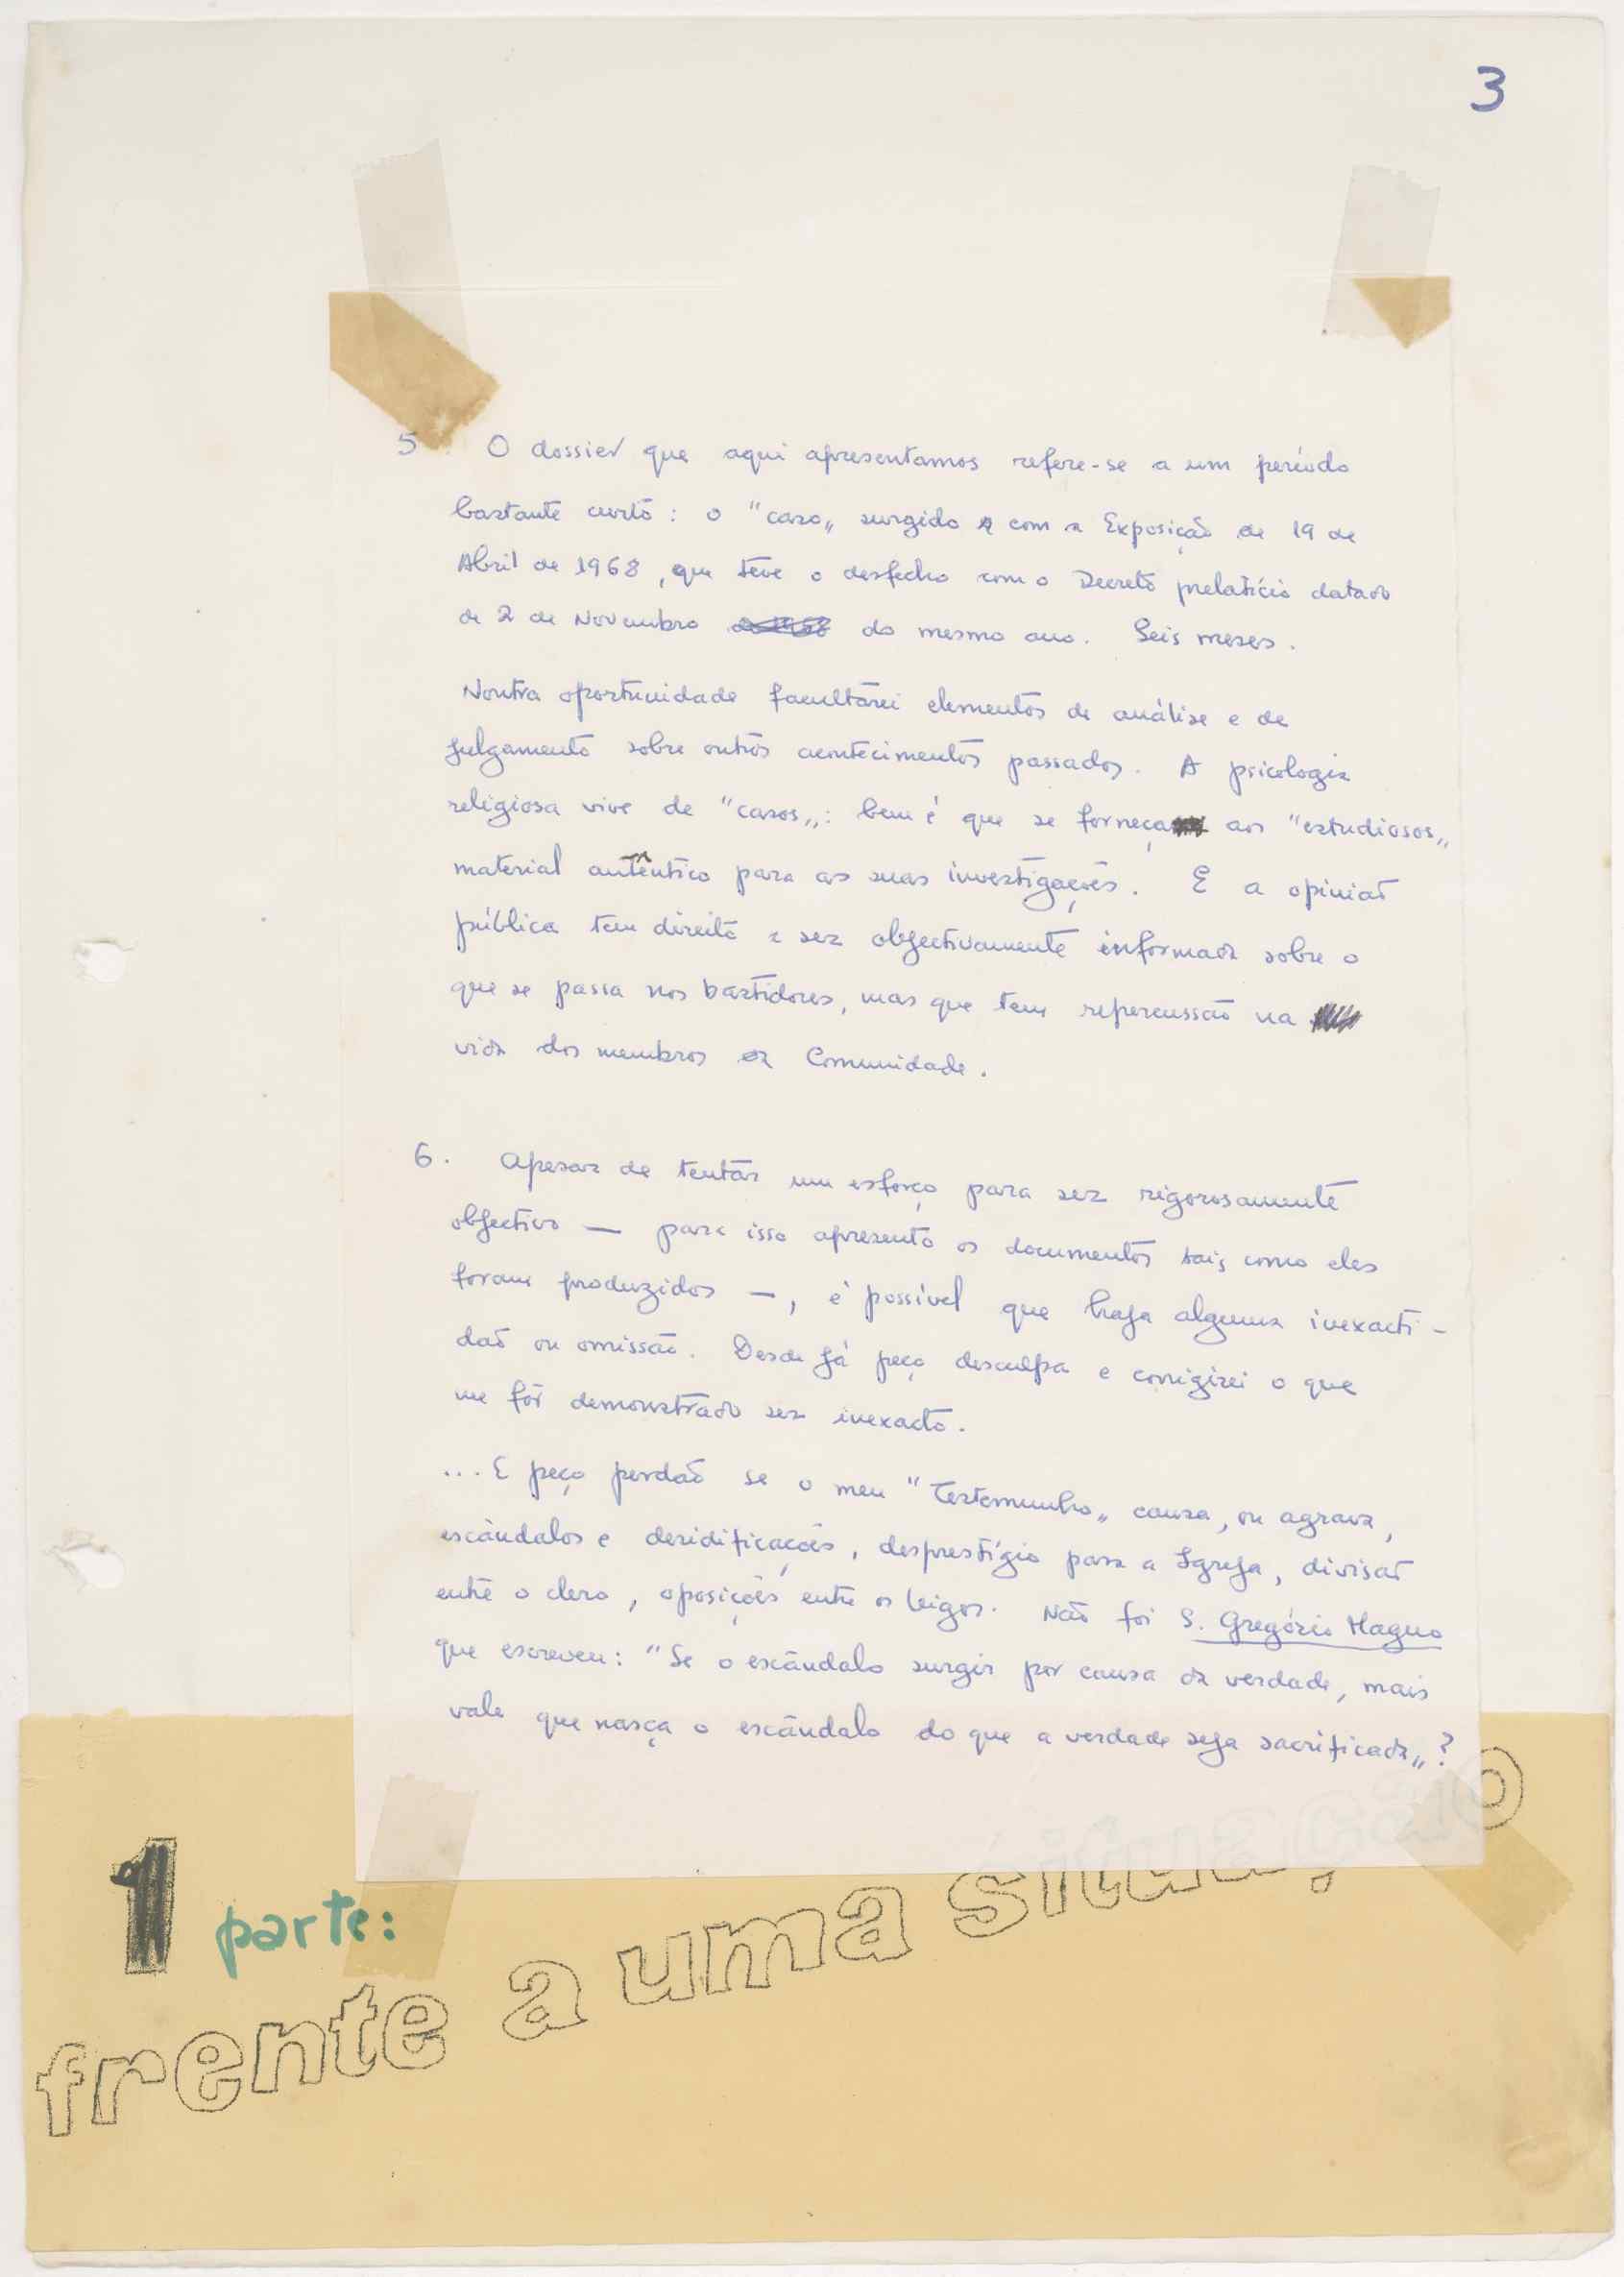 3
5. O dossier que aqui apresentamos refere-se a um período
bastante curto: o "caso„ surgido com a Exposição de 19 de
Abril de 1968, que teve o desfecho com o Decreto prelatício datado
de 2 de Novembro do mesmo ano. Seis meses.
Noutra oportunidade facultarei elementos de análise e de
julgamento sobre outros acontecimentos passados. A psicologia
religiosa vive de "casos„: bem é que se forneça aos "estudiosos„
material autêntico para as suas investigações. E a opinião
pública tem direito a ser objectivamente informada sobre o
que se passa nos bastidores, mas que tem repercussão na
vida dos membros da Comunidade.
6. Apesar de tentar um esforço para ser rigorosamente
objectivo — para isso apresento os documentos tais como eles
foram produzidos —, é possível que haja alguma inexacti-
dão ou omissão. Desde já peço desculpa e corrigirei o que
me fôr demonstrado ser inexacto.
... E peço perdão se o meu "Testemunho„ causa, ou agrava,
escândalos e desidificações, desprestígio para a Igreja, divisão
entre o clero, oposições entre os leigos. Não foi S. Gregório Magno
que escreveu: "Se o escândalo surgir por causa da verdade, mais
vale que nasça o escândalo do que a verdade seja sacrificada„?
1 parte:
frente a uma situação